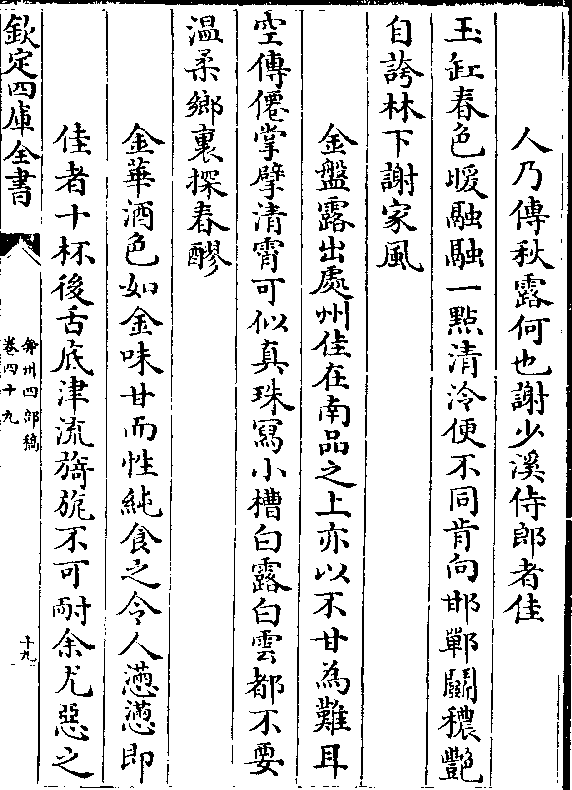 人乃傳秋露何也謝少溪侍郎者佳
玉缸春色暖融融一點清泠便不同肯向邯鄲鬬穠艷
自誇林下謝家風
金盤露出處州佳在南品之上亦以不甘為難耳
空傳僊掌擘清霄可似真珠寫小槽白露白雲都不要
溫柔鄉裏探春醪
金華酒色如金味甘而性純食之令人懣懣即
佳者十杯後舌底津流旖旎不可耐余尤惡之
欽定四庫全書
弇州四部稿
卷四十九
十九